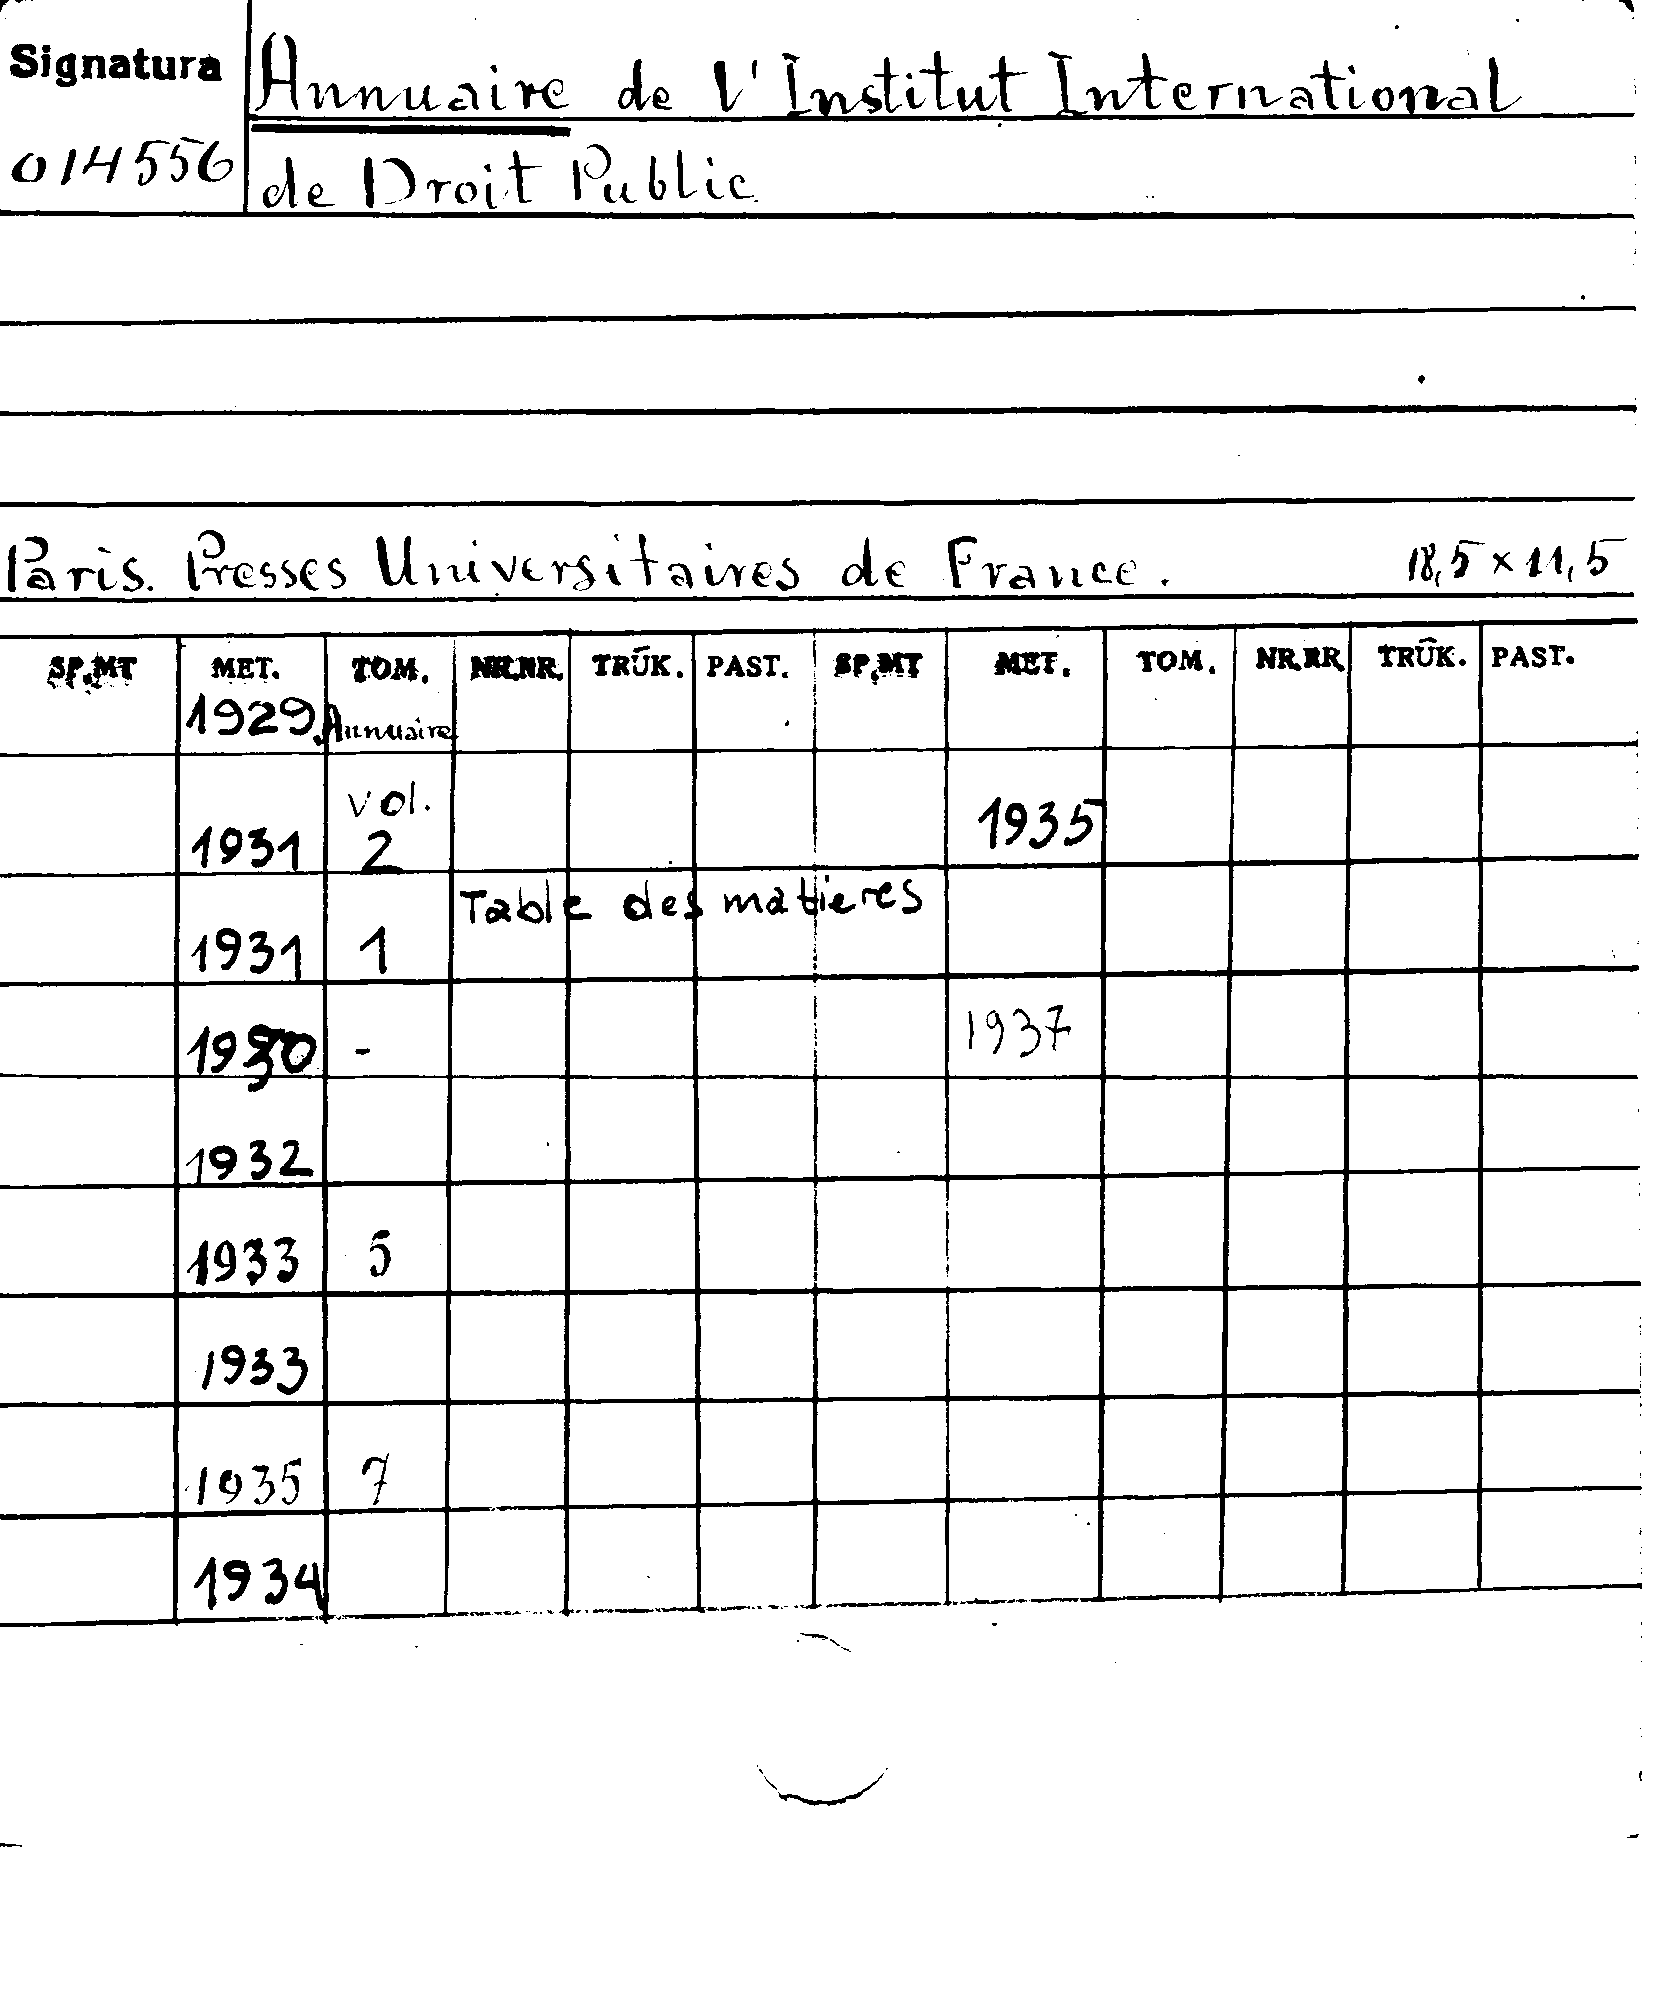 Signatura Annuaire de l'Institut International
014556 de Droit Public
Paris. Presses Universitaires de France. 18,5 x 11,5
SP.MT MET. TOM. NR.NR. TRŪK. PAST. SP.MT MET. TOM. NR.NR. TRŪK. PAST.
1929. Annuaire
1931 vol. 2 1935
1931 1 Table des matieres
1930 - 1937
1932
1933 5
1933
1935 7
1934